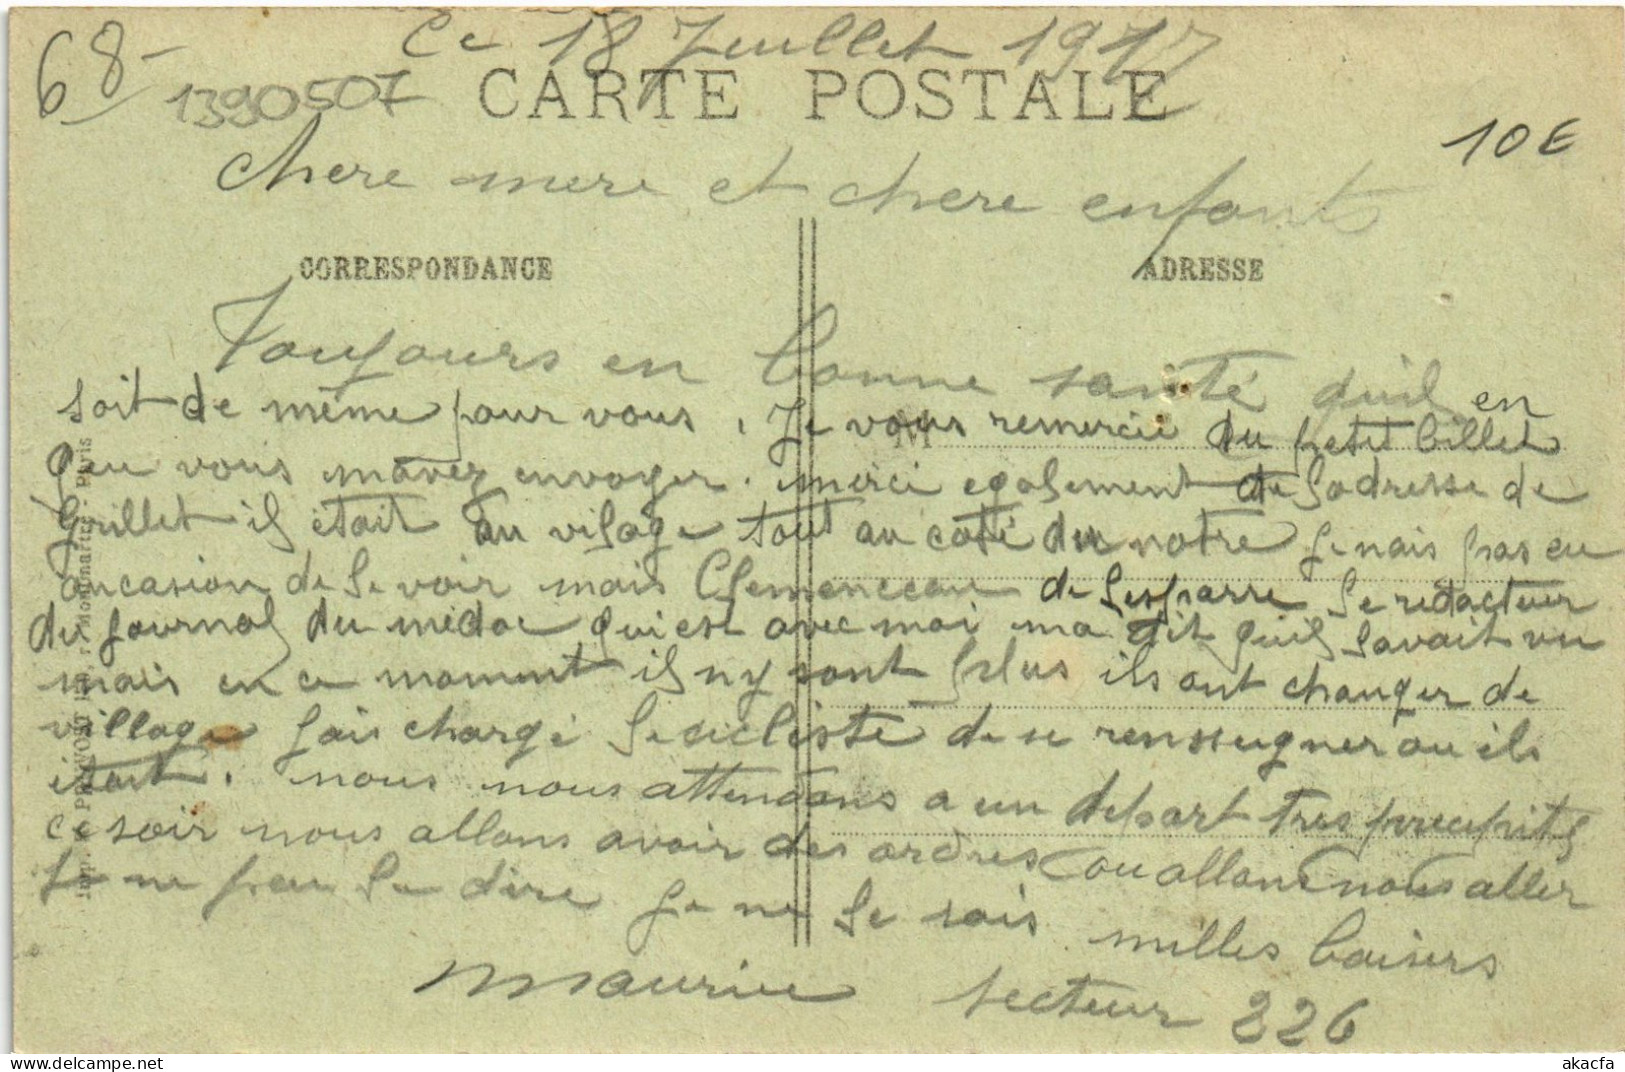 68-
1390507
Ce 18 Juillet 1917
CARTE POSTALE
10€
chere mere et chere enfants
CORRESPONDANCE
ADRESSE
Toujours en bonne santé quil en
soit de même pour vous. Je vous remercie du petit billet
que vous mavez envoyer. merci egalement de ladresse de
Grillet il était au vilage tout au coté du notre je nais pas eu
loucasion de le voir mais Clemenceau de Lesparre le redacteur
du journal du médoc qui est avec moi ma dit quil lavait vu
mais en ce moment il ny sont plus ils ont changer de
village jais chargé le sicliste de se renseugner ou ils
était. nous nous attendons a un depart tres precipité
ce soir nous allons avoir des ordres ou allons nous aller
je ne peu le dire je ne le sais milles baisers
Maurice secteur 226
M
Imp. PRÉVOST, r. Montmartre - Paris
akacfa